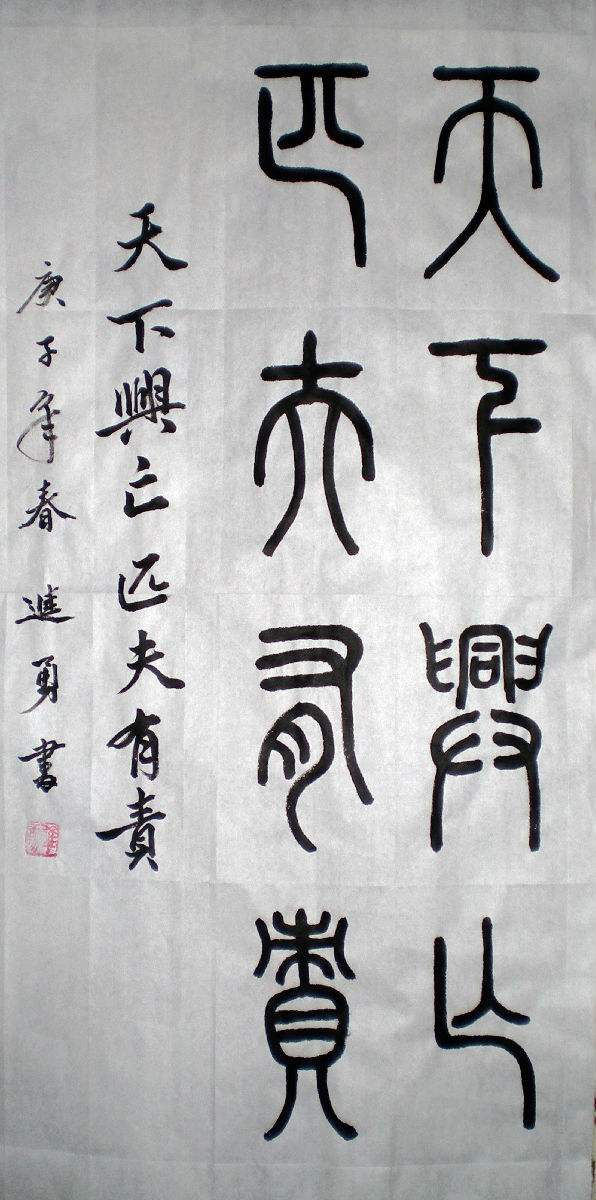 天下興亡
匹夫有責
天下興亡匹夫有責
庚子年春進勇書